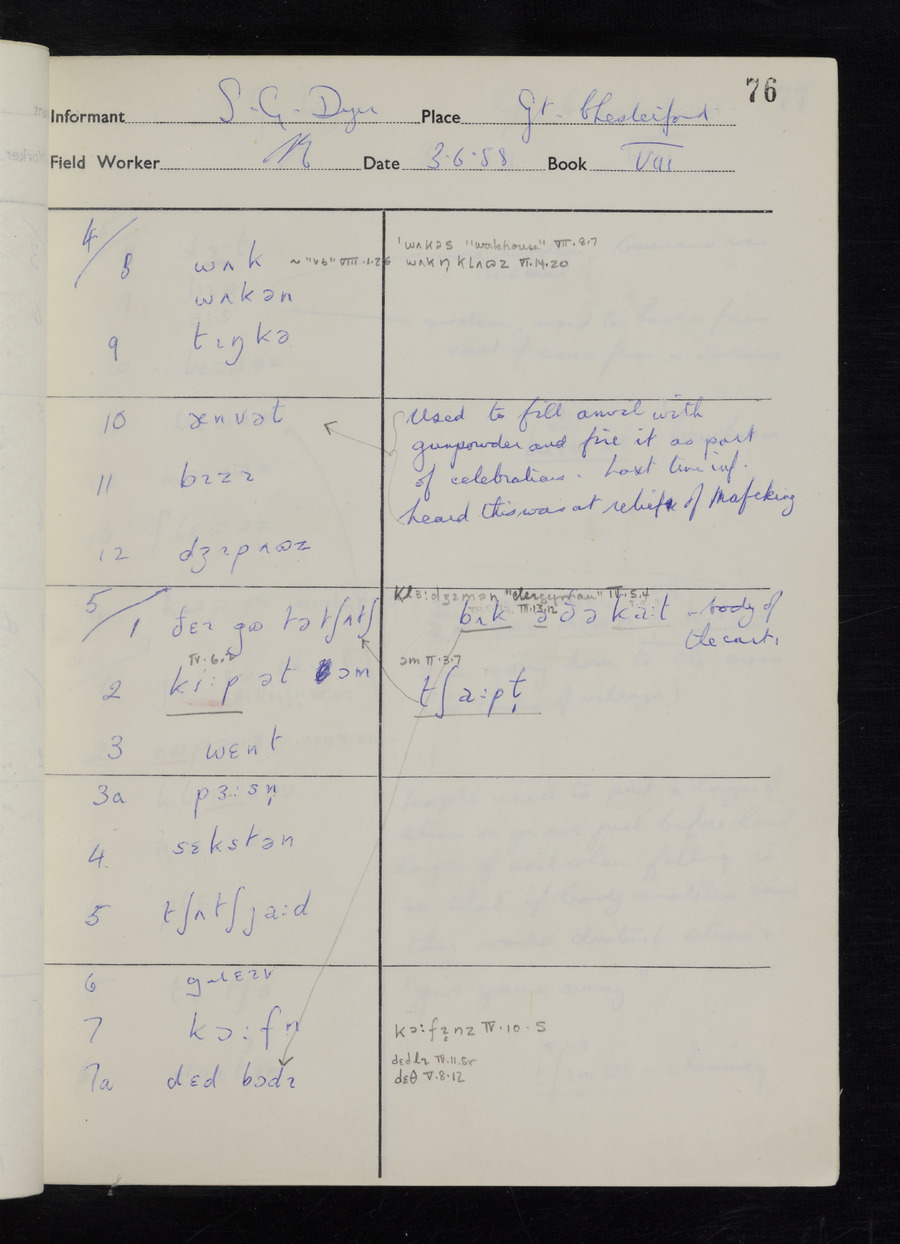 76
Informant S. G. Dyer Place Gt. Chesterford
Field Worker Date 3.6.58 Book VIII
4/
8 wʌk ~ "vb" VIII.1.26
ˈwʌkəs "workhouse" VII.8.7
wʌkŋ klʌʊz VI.14.20
wʌkən
9 tɪŋkə
10 ænvət
Used to fill anvil with
gunpowder and fire it as part
of celebrations. Last time inf.
heard this was at relief of Mafeking
11 bɪzɪ
12 dʒɪpʌʊz
5/
klɜ:dʒəmən "clergyman" IV.5.4
III.13.12
1 ðeɪ gʊ tə tʃʌtʃ
bʌk ə ðə ka:t - body of
the cart.
IV.6.2
2 ki:p ət əm
əm II.3.7
tʃa:pt̩
3 wɛnt
3a pɜ:sn̩
4. sɛkstən
5 tʃʌtʃ ja:d
6 gɹɛɪv
7 kɔ:fn
kɔ:fɪnz IV.10.5
7a dɛd bɔdɪ
dɛdlɪ IV.11.5r
dɛθ V.8.12